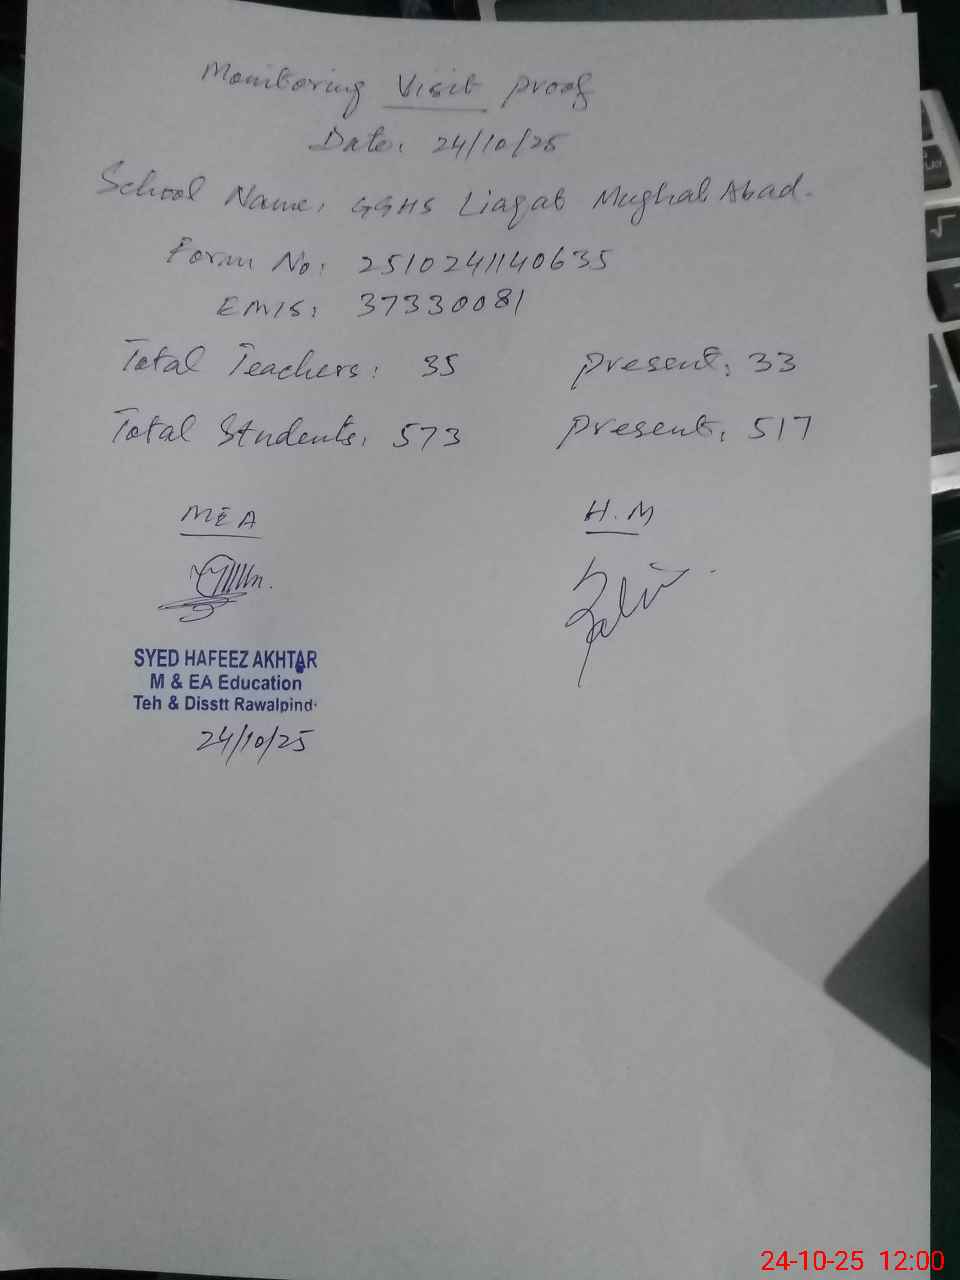 Monitoring Visit Proof
Date: 24/10/25
School Name: GGHS Liaqat Mughal Abad.
Form No: 2510241140635
EMIS: 37330081
Total Teachers: 35 Present: 33
Total Students: 573 Present: 517
MEA H.M
SYED HAFEEZ AKHTAR
M & EA Education
Teh & Disstt Rawalpindi
24/10/25
24-10-25 12:00